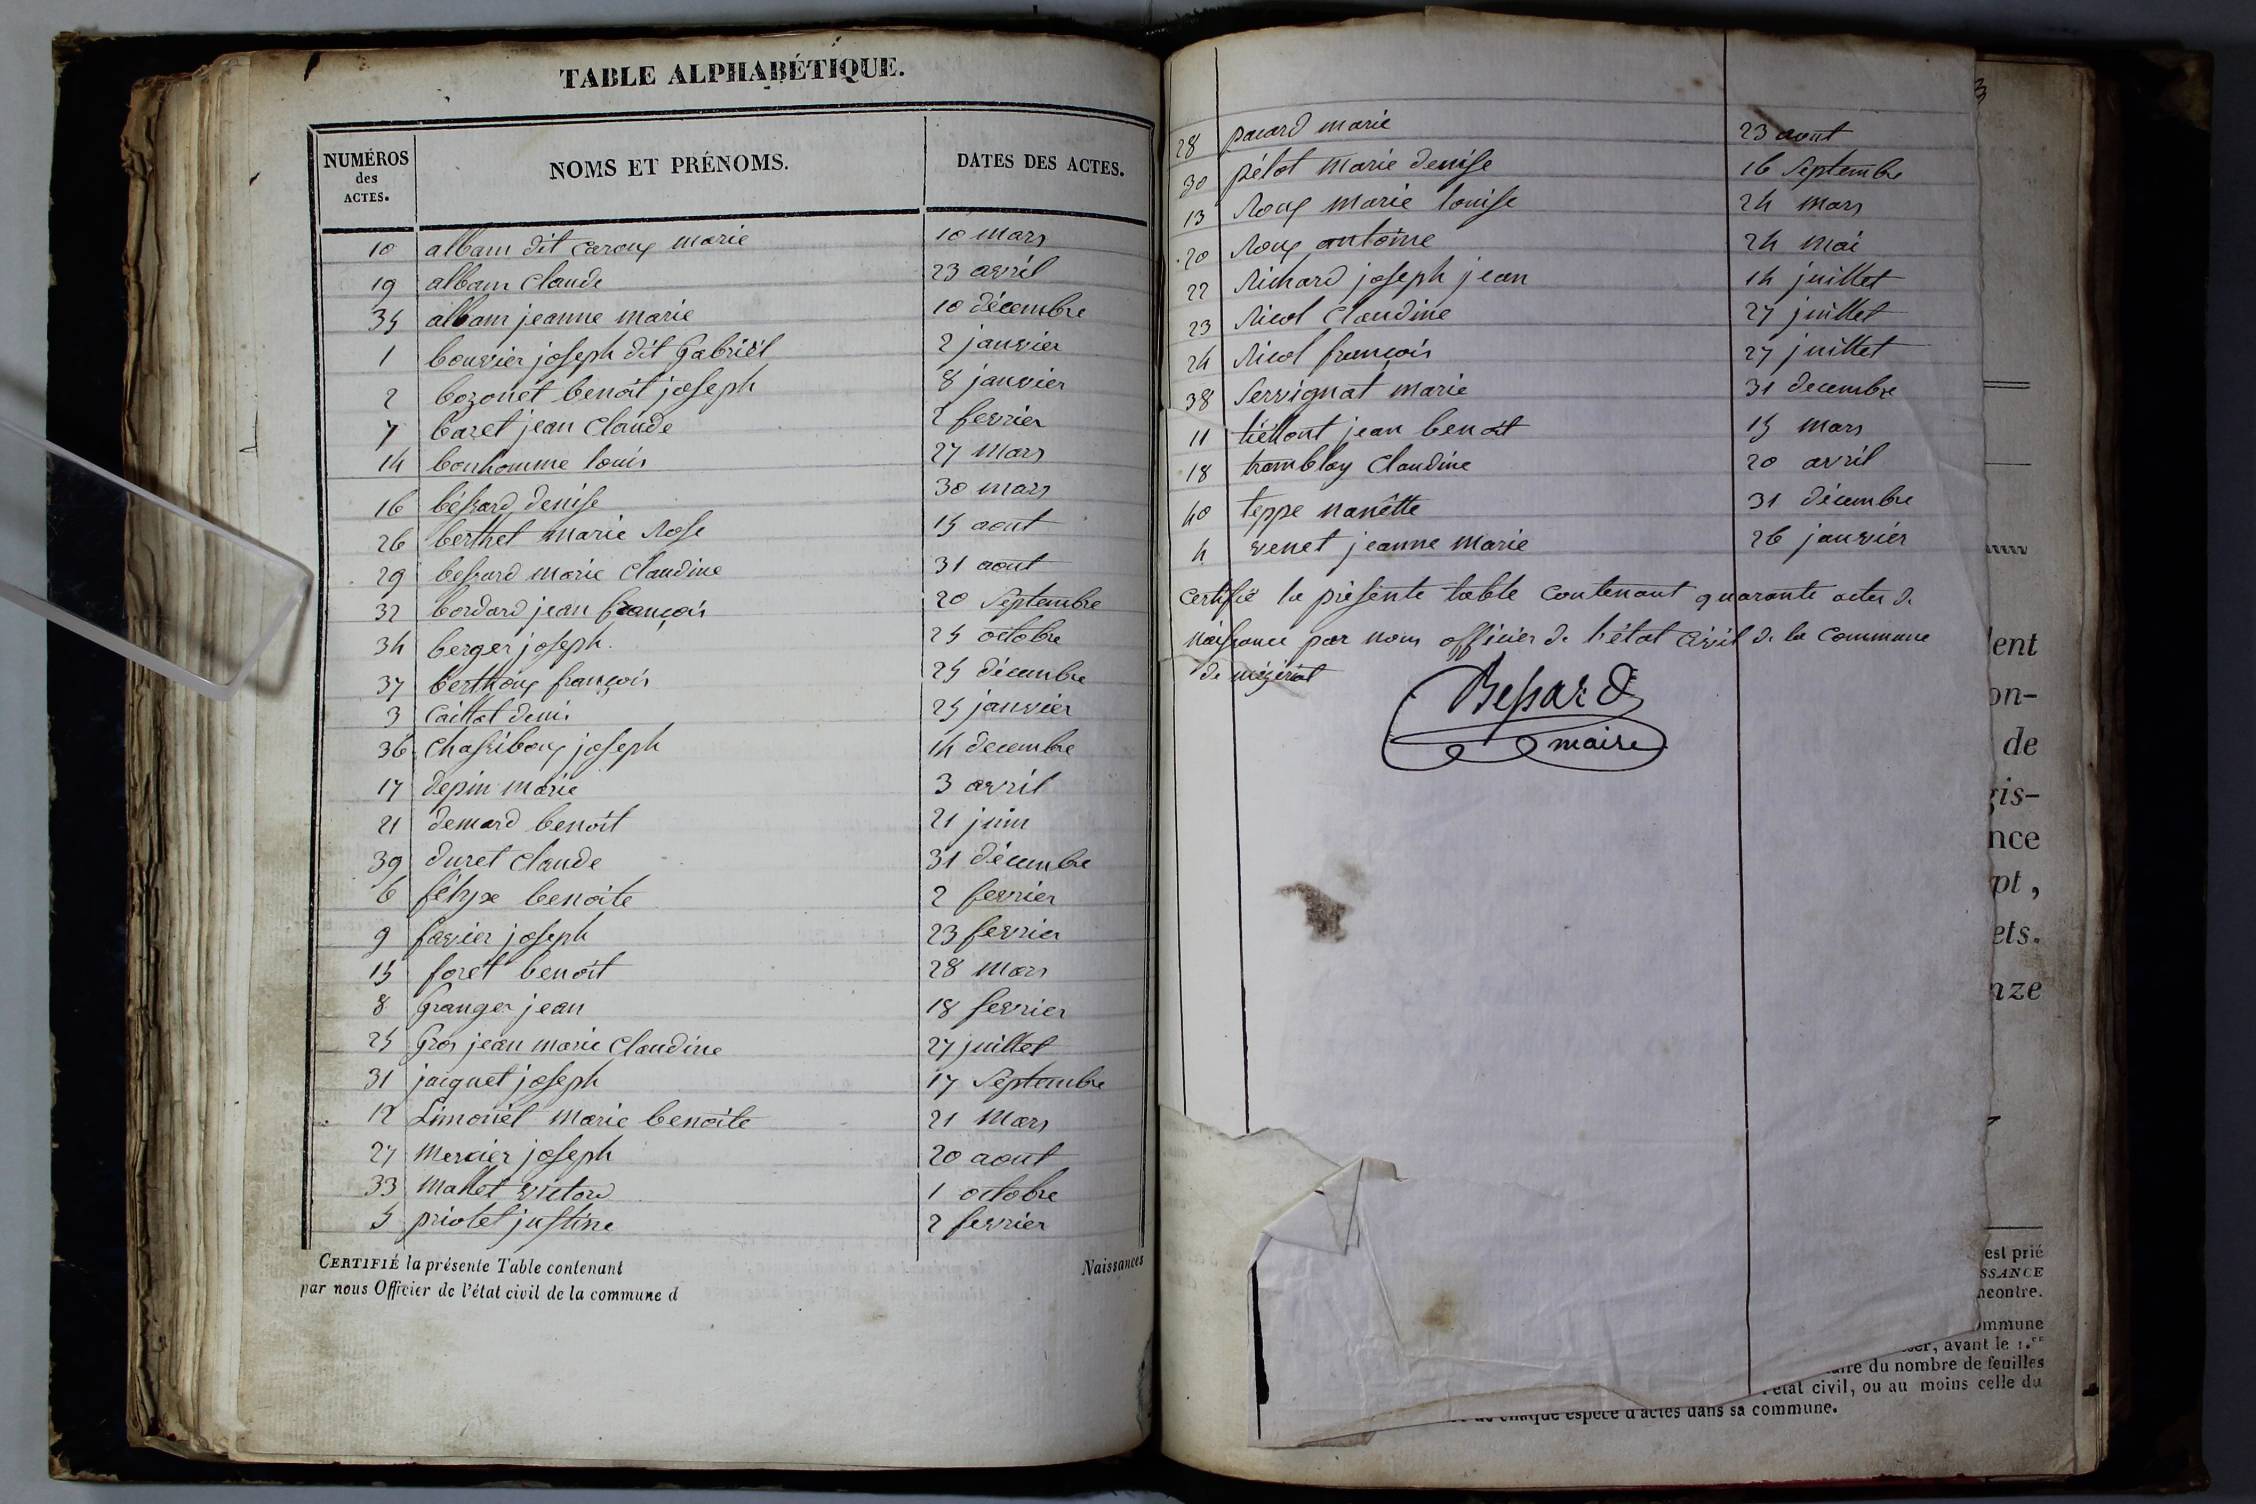 TABLE ALPHABÉTIQUE.
NUMÉROS des ACTES. NOMS ET PRÉNOMS. DATES DES ACTES.
10 albam dit caroux marie 10 mars
19 albam claude 23 avril
35 albam jeanne marie 10 décembre
1 bouvier joseph dit Gabriël 2 janvier
2 bozonet benoit joseph 8 janvier
7 baret jean claude 2 fevrier
14 bonhomme louis 27 mars
16 béssard denise 30 mars
26 berthet marie Rose 15 aout
29 bessard marie claudine 31 aout
32 bordard jean françois 20 Septembre
34 berger joseph. 25 octobre
37 berthoux françois 25 décembre
3 caillat denis 25 janvier
36 chassiboux joseph 14 decembre
17 depin marie 3 avril
21 demard benoit 21 juin
39 duret claude 31 décembre
6 benoite 2 fevrier
9 favier joseph 23 fevrier
15 foret benoit 28 mars
8 Granger jean 18 fevrier
25 Gros jean marie claudine 27 juillet
31 jacquet joseph 17 Septembre
12 Limonet marie benoite 21 Mars
27 Mercier joseph 20 aout
33 Mallet victor 1 octobre
5 priolet justine 2 fevrier
CERTIFIÉ la présente Table contenant Naissances
par nous Officier de l'état civil de la commune d
28 pacard marie 23 aout
30 pélot marie denise 16 Septembre
13 Roux marie louise 24 mars
20 Roux antoine 24 mai
22 Richard joseph jean 14 juillet
23 Ricol Claudine 27 juillet
24 Ricol françois 27 juillet
38 Servignat marie 31 decembre
11 jean benoit 15 mars
18 tramblay Claudine 20 avril
40 teppe nanêtte 31 décembre
4 venet jeanne marie 26 janvier
certifié la présente table contenant quarante actes de
naissance par nous officier de l'état civil de la commune
de mézériat
Bessard
maire
ent
on-
de
gis-
nce
pt,
ets.
nze
est prié
SSANCE
ncontre.
ommune
, avant le 1.er
aire du nombre de feuilles
l'état civil, ou au moins celle du
de chaque espèce d'actes dans sa commune.